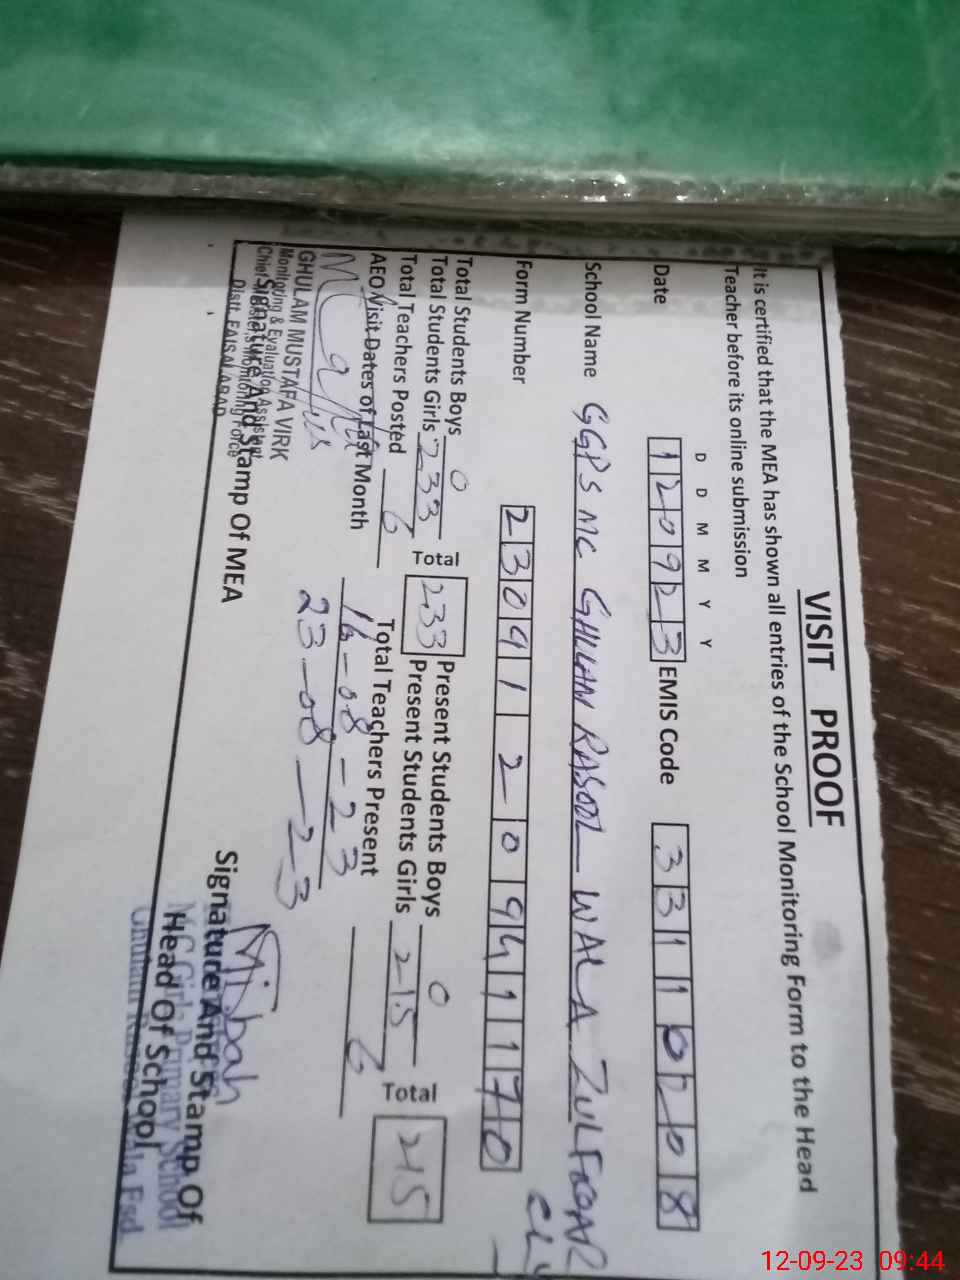 VISIT PROOF
It is certified that the MEA has shown all entries of the School Monitoring Form to the Head
Teacher before its online submission
D D M M Y Y
Date 120923 EMIS Code 33110208
School Name GGPS MC GHULAM RASOOL WALA ZULFQAR
Form Number 2309120941170
Total Students Boys 0 Present Students Boys 0
Total Students Girls 233 Total 233 Present Students Girls 215 Total 215
Total Teachers Posted 6 Total Teachers Present 6
AEO Visit Dates of Last Month 16-08-23
23-08-23
GHULAM MUSTAFA VIRK
Monitoring & Evaluation Assistant
Chief Minister,s Monitoring Force
Distt. FAISALABAD
Signature And Stamp Of MEA
Misbah
Signature And Stamp Of
Head Of School
M.C Girls Primary School
Ghulam Rasool Wala Fsd
12-09-23 09:44